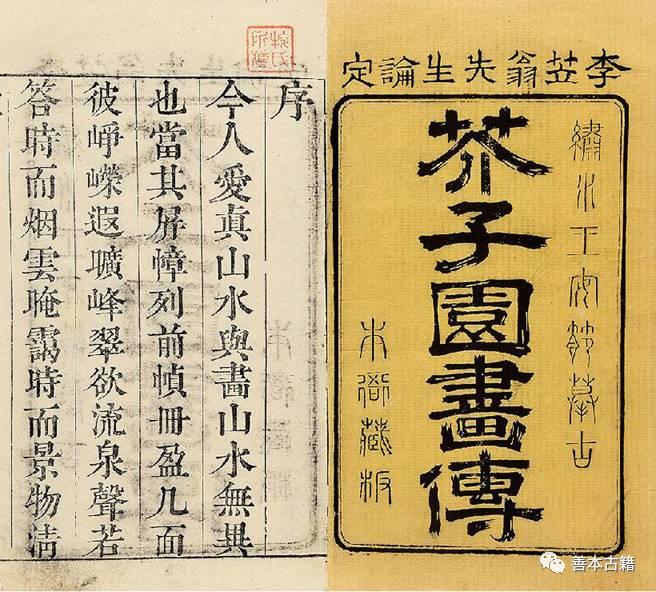 李笠翁先生論定
繡水王安節摹古
芥子園畫傳
本衙藏板
序
今人愛眞山水與畫山水無異
也當其屏幛列前幀冊盈几面
彼崢嶸遐曠峰翠欲流泉聲若
答時而烟雲晻靄時而景物清
善本古籍